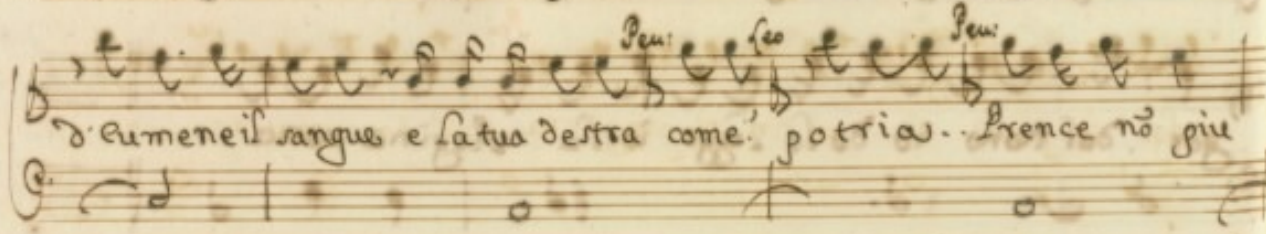 Peu: Leo Peu:
d'Eumene il sangue e la tua destra come? potria.. Prence nõ piu